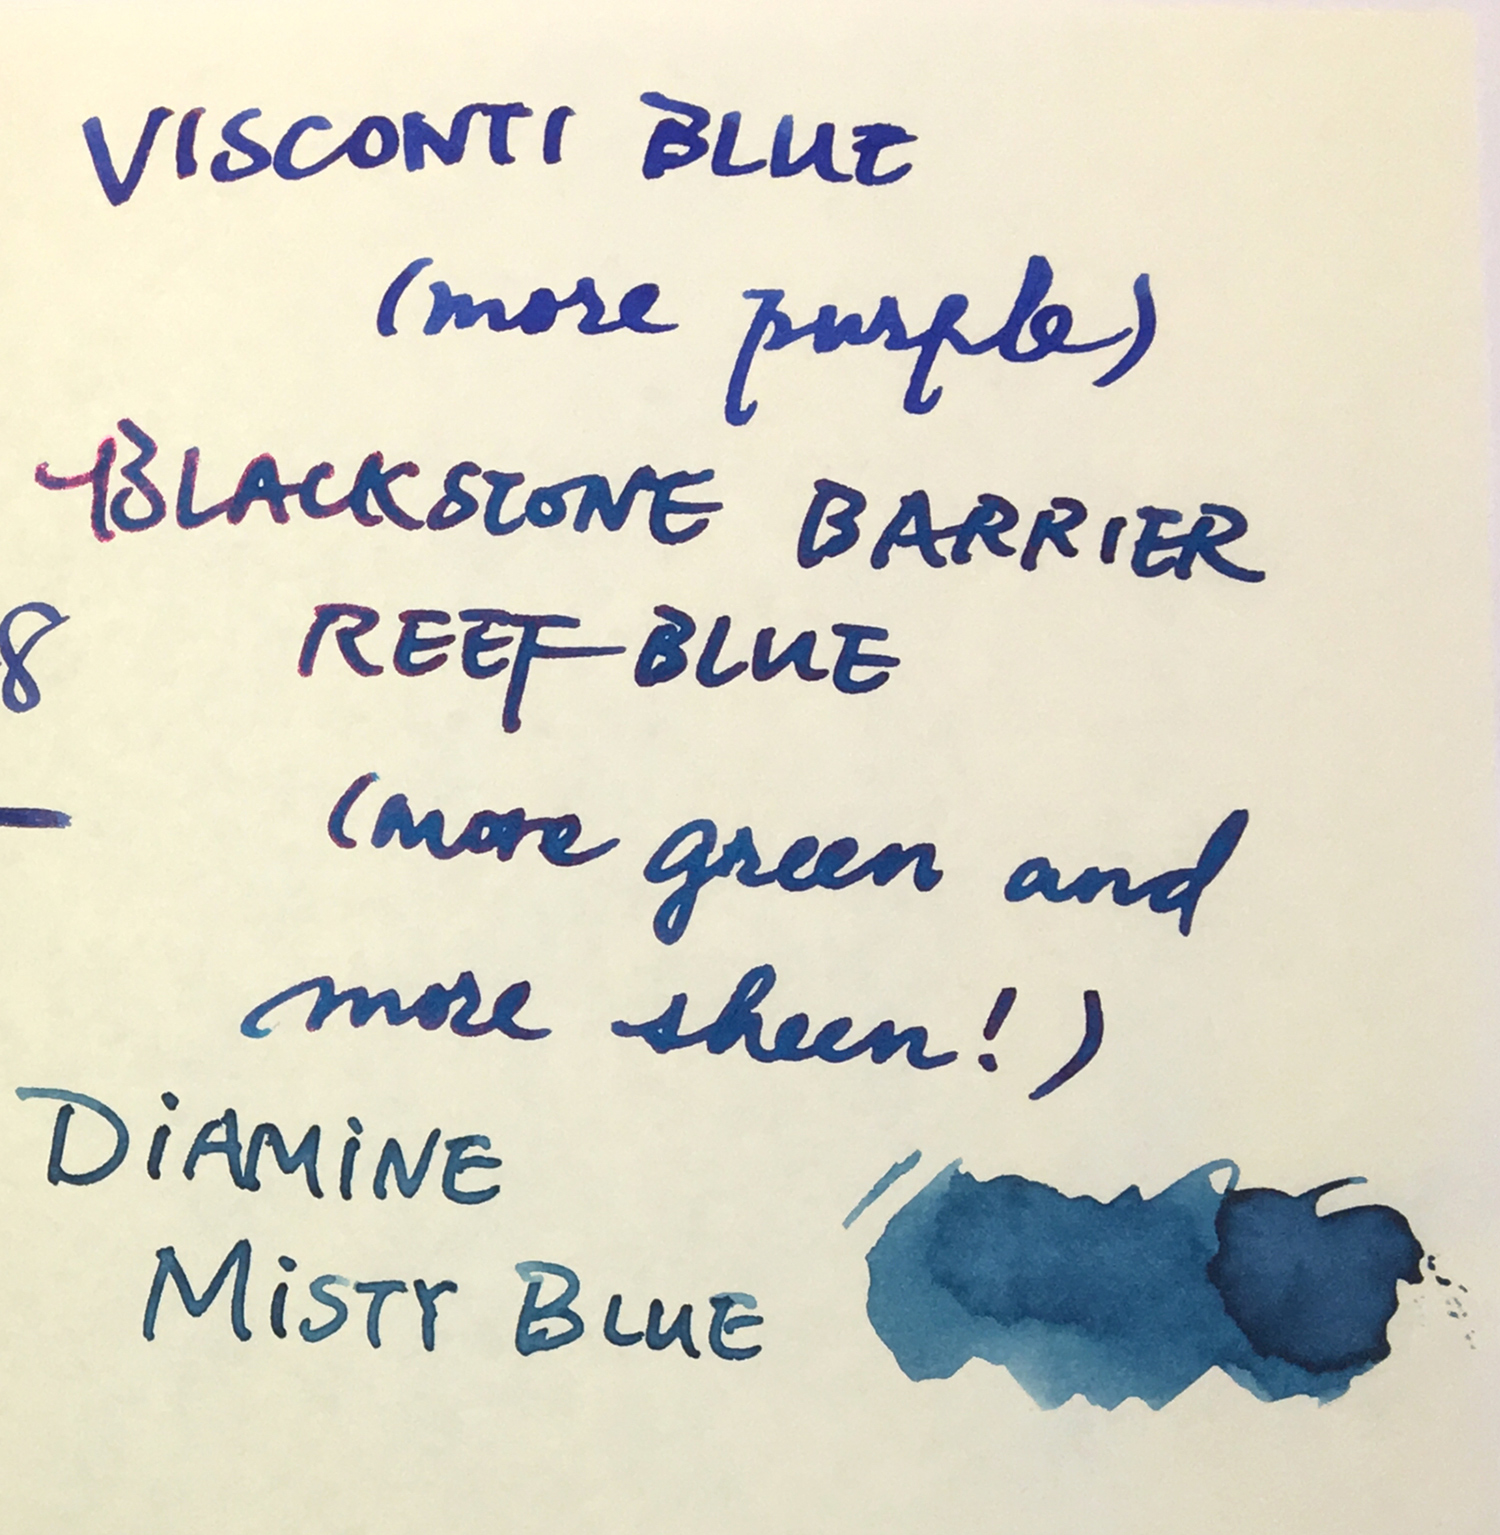 VISCONTI BLUE
(more purple)
BLACKSTONE BARRIER
8 REEF BLUE
(more green and
more sheen!)
DiAMiNE
MiSTY BLUE